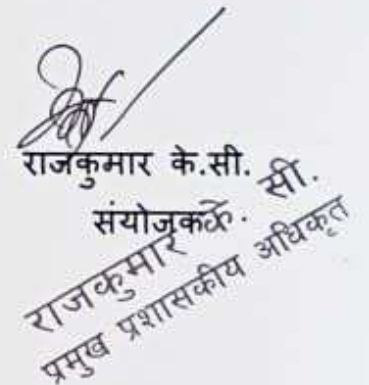 राजकुमार के.सी.
संयोजक
राजकुमार के. सी.
प्रमुख प्रशासकीय अधिकृत